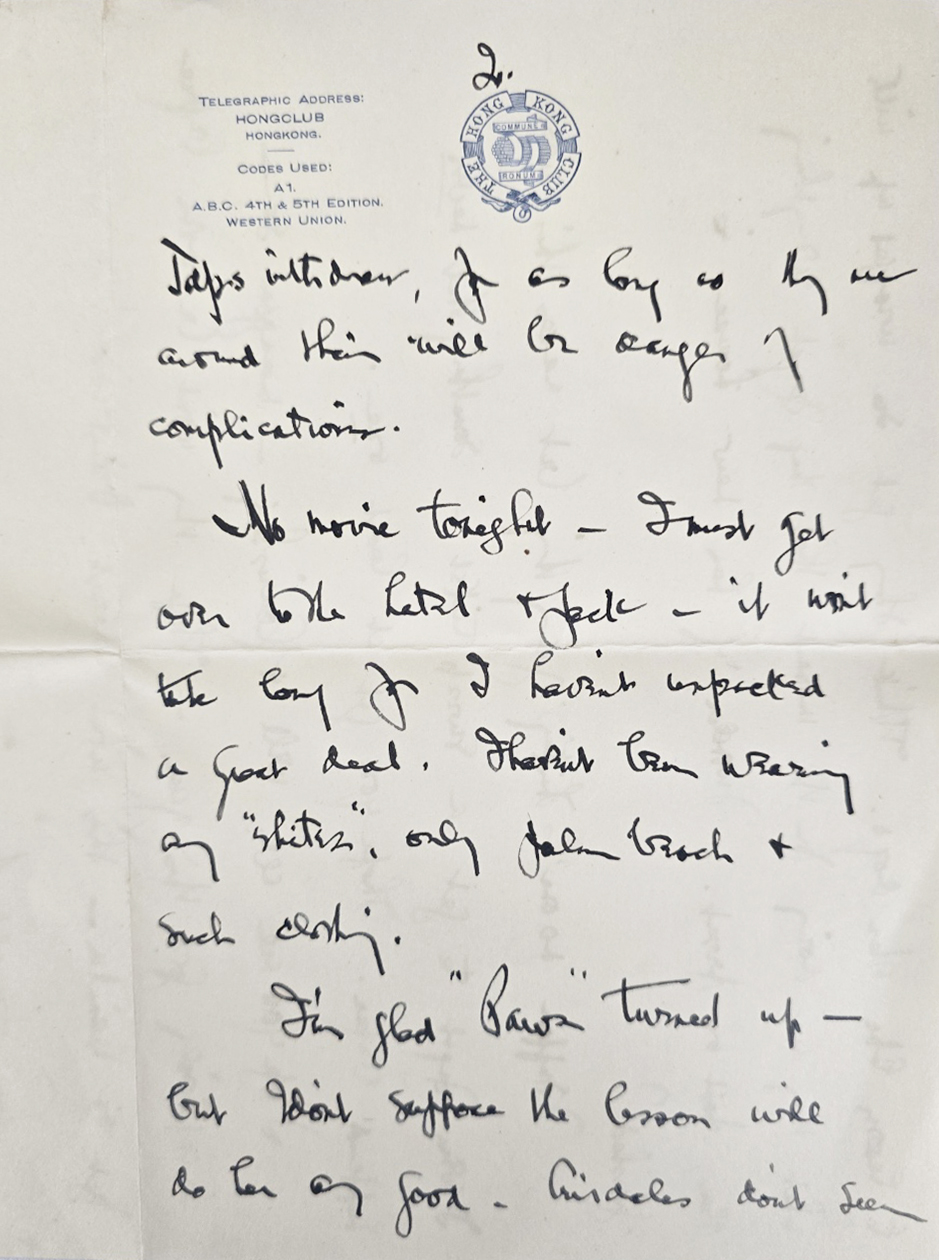 2.
TELEGRAPHIC ADDRESS:
HONGCLUB
HONGKONG.
CODES USED:
A1.
A.B.C. 4TH & 5TH EDITION.
WESTERN UNION.
THE HONG KONG CLUB
COMMUNE
BONUM
Japs withdraw, for as long as they are
around there will be danger of
complications.
No movie tonight – I must get
over to the hotel & pack – it wont
take long for I haven't unpacked
a great deal. I haven't been wearing
any "whites", only palm beach &
such clothing.
I'm glad "Paws" turned up –
but I don't suppose the lesson will
do her any good – Airedales don't seem